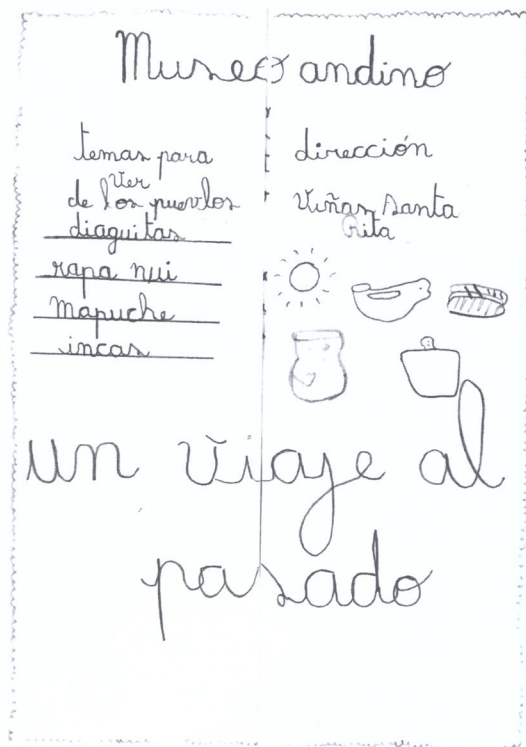 Museo andino
temas para
ver
de los puevlos
diaguitas
rapa nui
mapuche
incas
dirección
Viñas Santa
Rita
un viaje al
pasado